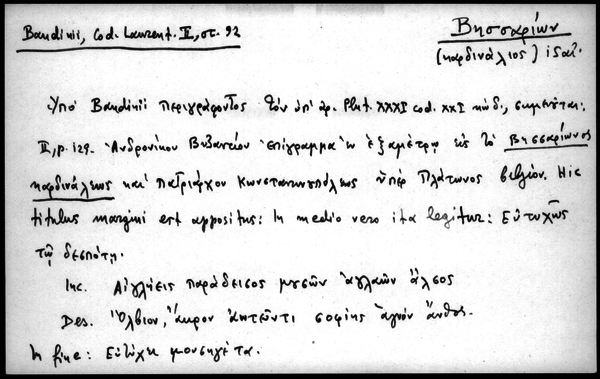 Bandinii, Cod. Laurent. II, στ. 92
Βησσαρίων
(καρδινάλιος)
Ὑπὸ Bandinii περιγράφοντος τὸν ὑπ' ἀρ. Plut. XXXI cod. XXI κώδ., σημειοῦται:
II, p. 129. Ἀνδρονίκου Βυζαντίου ἐπίγραμμα ἐν ἑξαμέτρῳ εἰς τὸ Βησσαρίωνος
καρδινάλεως καὶ πατριάρχου Κωνσταντινουπόλεως ὑπὲρ Πλάτωνος βιβλίον. Hic
titulus margini est appositus: In medio vero ita legitur: Εὐτυχῶς
τῷ δεσπότῃ.
Inc. Αἰγλήεις παράδεισος μουσῶν ἀγλαὸν ἄλσος
Des. Ὄλβιον, ἄκρον ἀωτεῦντι σοφίης ἁγνὸν ἄνθος.
In fine: Εὐτύχει μουσηγέτα.